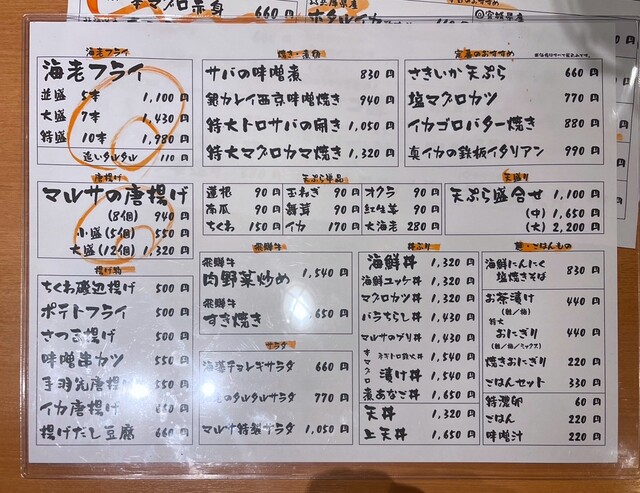 本マグロ赤身 660円
ホタルイカ
海老フライ
海老フライ
並盛 5本 1,100円
大盛 7本 1,430円
特盛 10本 1,980円
追いタルタル 110円
唐揚げ
マルサの唐揚げ
(8個) 940円
小盛(5個) 550円
大盛(12個) 1,320円
揚げ物
ちくわ磯辺揚げ 500円
ポテトフライ 500円
さつま揚げ 500円
味噌串カツ 550円
手羽先唐揚げ 550円
イカ唐揚げ 660円
揚げだし豆腐 660円
焼き・煮物
サバの味噌煮 830円
銀カレイ西京味噌焼き 940円
特大トロサバの開き 1,050円
特大マグロカマ焼き 1,320円
天ぷら単品
蓮根 90円 玉ねぎ 90円 オクラ 90円
南瓜 90円 舞茸 90円 紅生姜 90円
ちくわ 150円 イカ 170円 大海老 280円
飛騨牛
飛騨牛
肉野菜炒め 1,540円
飛騨牛
すき焼き 1,650円
サラダ
海藻チョレギサラダ 660円
のタルタルサラダ 770円
マルサ特製サラダ 1,050円
定番のおすすめ
さきいか天ぷら 660円
塩マグロカツ 770円
イカゴロバター焼き 880円
真イカの鉄板イタリアン 990円
天盛り
天ぷら盛合せ 1,100円
(中) 1,650円
(大) 2,200円
丼ぶり
海鮮丼 1,320円
海鮮ユッケ丼 1,320円
マグロカツ丼 1,320円
バラちらし丼 1,430円
マルサのブリ丼 1,430円
ネギトロ鉄火丼 1,540円
漬け丼 1,540円
煮あなご丼 1,650円
天丼 1,320円
上天丼 1,650円
麺・ごはんもの
海鮮にんにく
塩焼きそば 830円
お茶漬け 440円
特大
おにぎり 440円
焼きおにぎり 220円
ごはんセット 330円
特濃卵 60円
ごはん 220円
味噌汁 220円